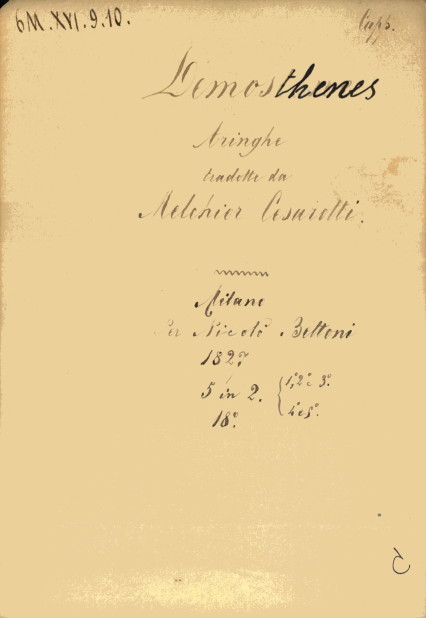 6M.XVI.9.10.
Demosthenes
Aringhe
tradotte da
Melchior Cesarotti.
Milano
Per Nicolò Bettoni
1827
5 in 2. { 1°, 2° e 3°.
4° e 5°.
18°.